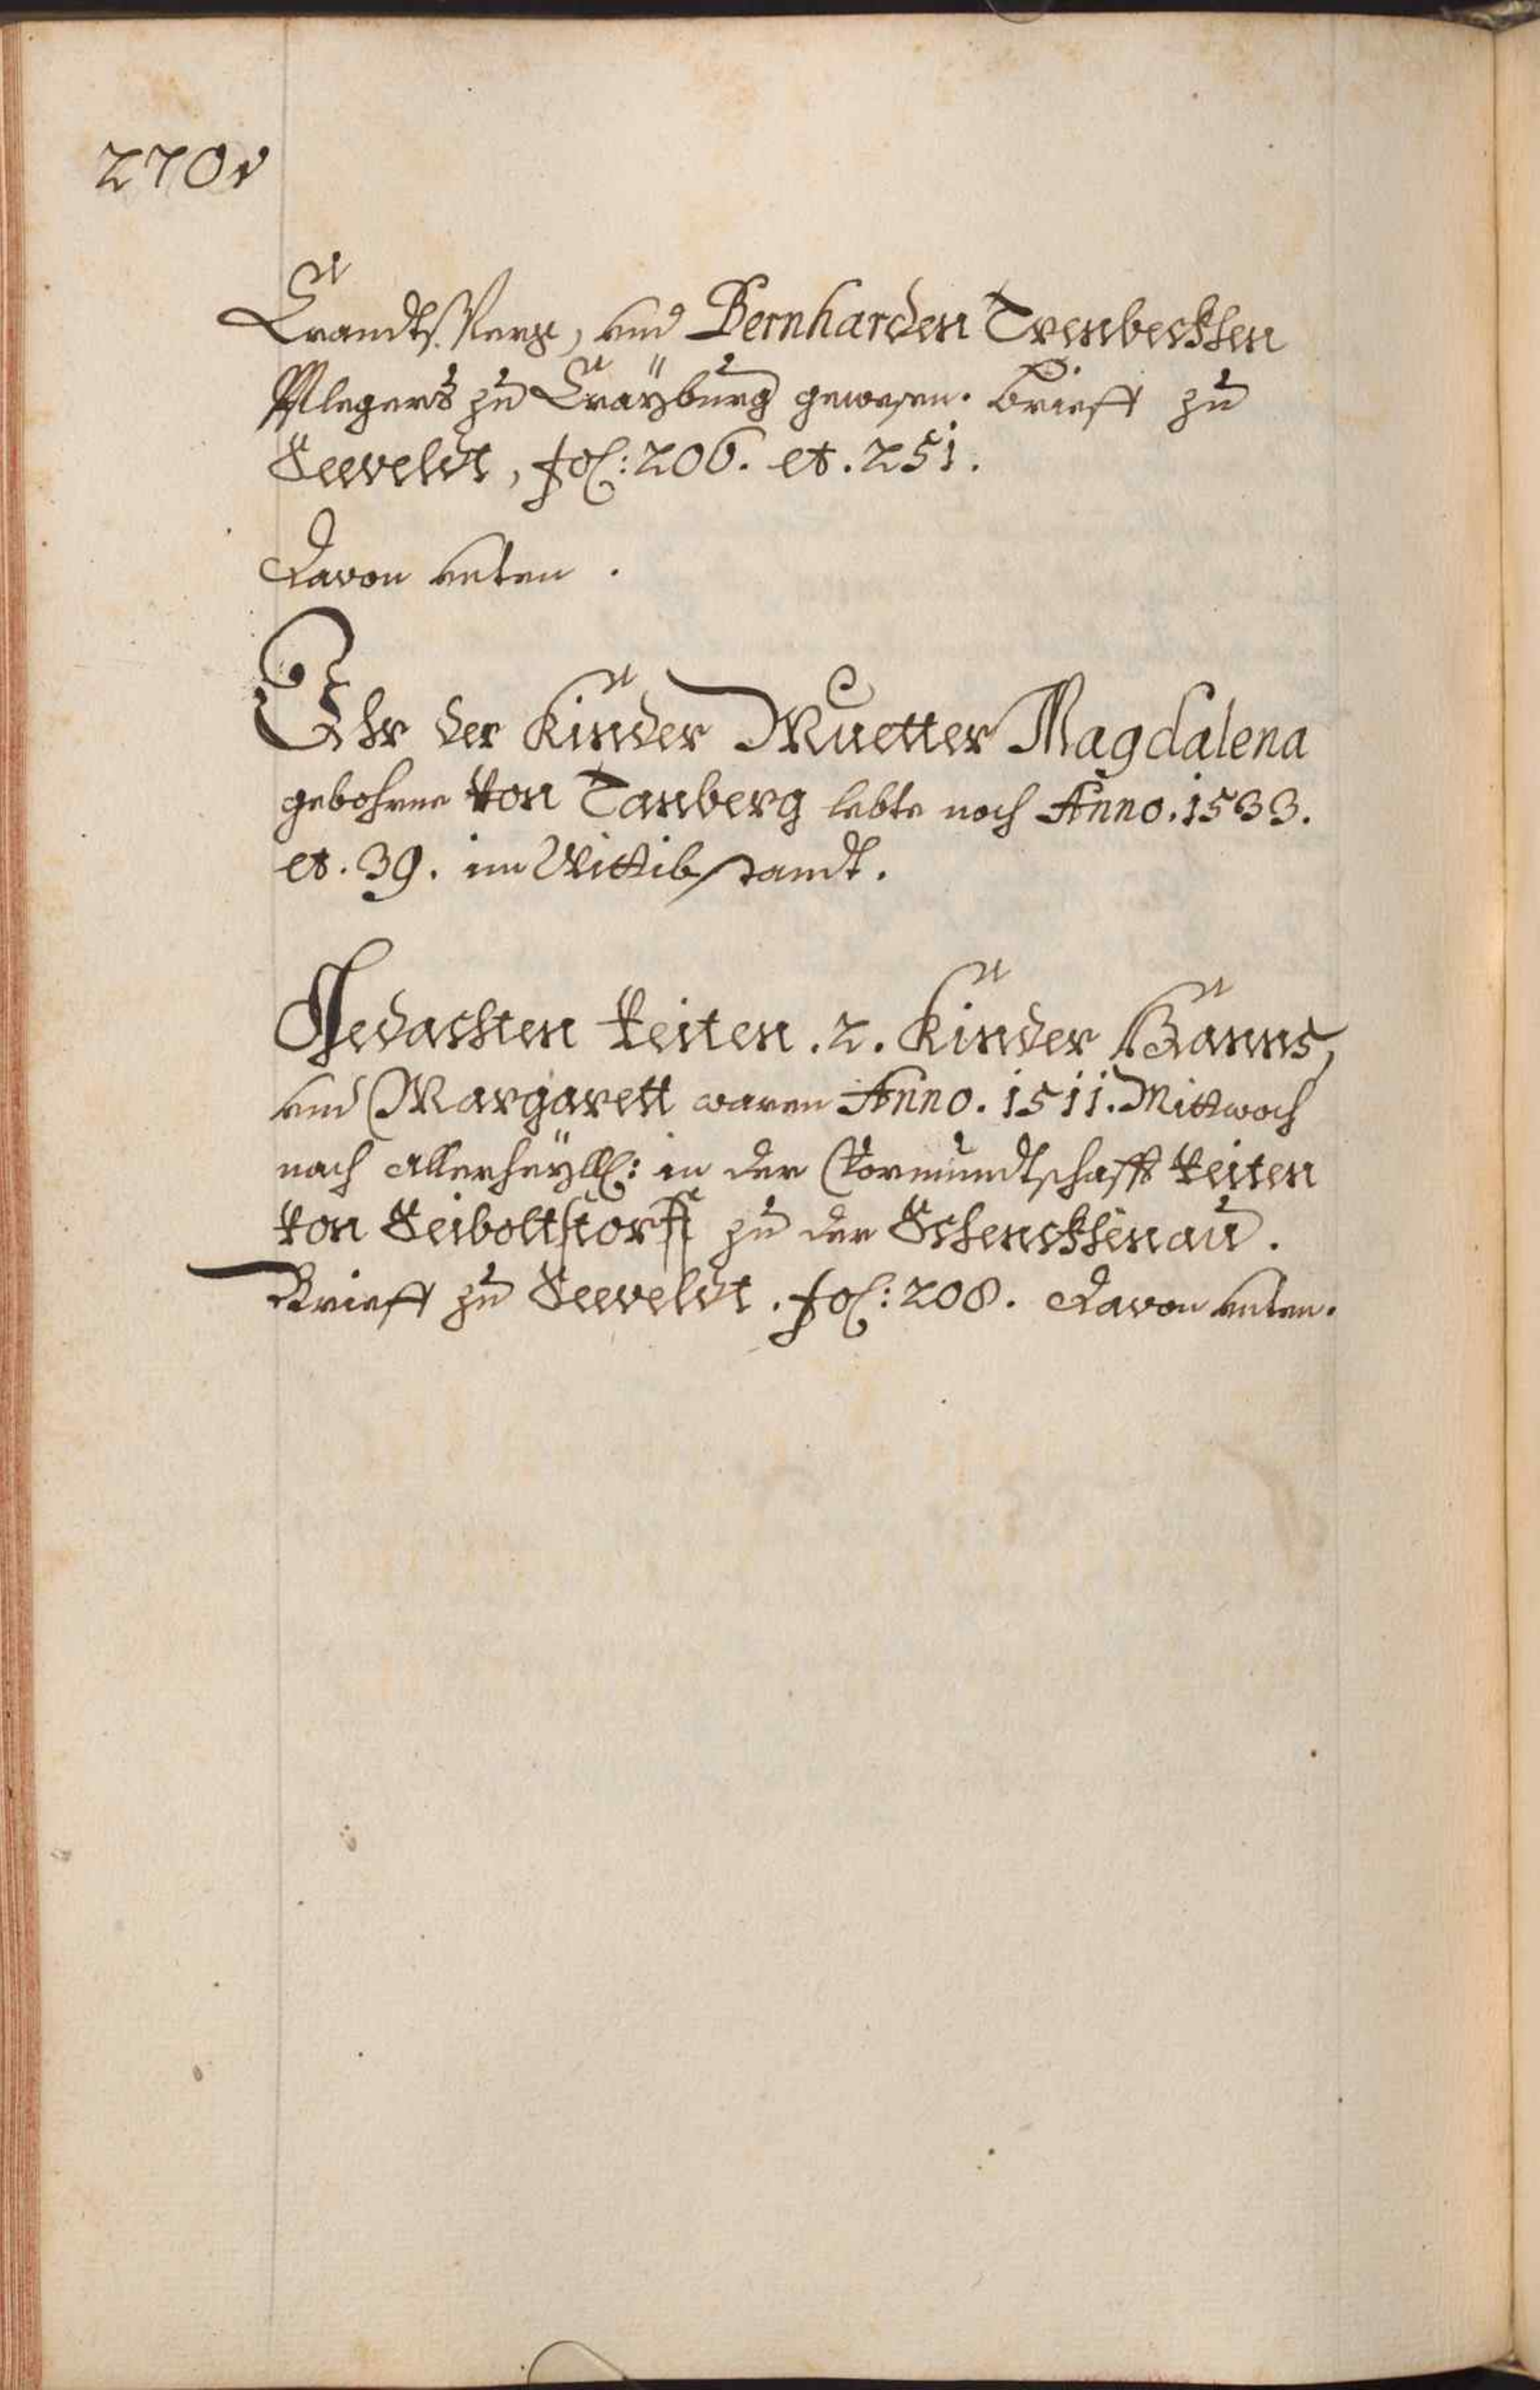 270v
Crandtsperg, und Bernharden Trenbeckhen
Pflegers zu Crayburg gewesen. Brieff zu
Seeveldt, fol: 206. et. 251.
Davon unten.
Ihr der Kinder Muetter Magdalena
gebohrne von Tanberg lebte noch Anno. 1533.
et. 39. im Wittibstandt.
Gedachten Veiten. 2. Kinder Hanns,
und Margarett waren Anno. 1511. Mittwoch
nach Allerheyll: in der Vormundtschafft Veiten
von Seiboltstorff zu der Schenckhenau.
Brieff zu Seeveldt. fol: 208. Davon unten.